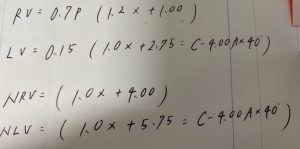 RV = 0.7P (1.2 x +1.00)
LV = 0.15 (1.0 x +2.75 = C-4.00 A x 40°)
NRV = (1.0 x +4.00)
NLV = (1.0 x +5.75 = C-4.00 A x 40°)